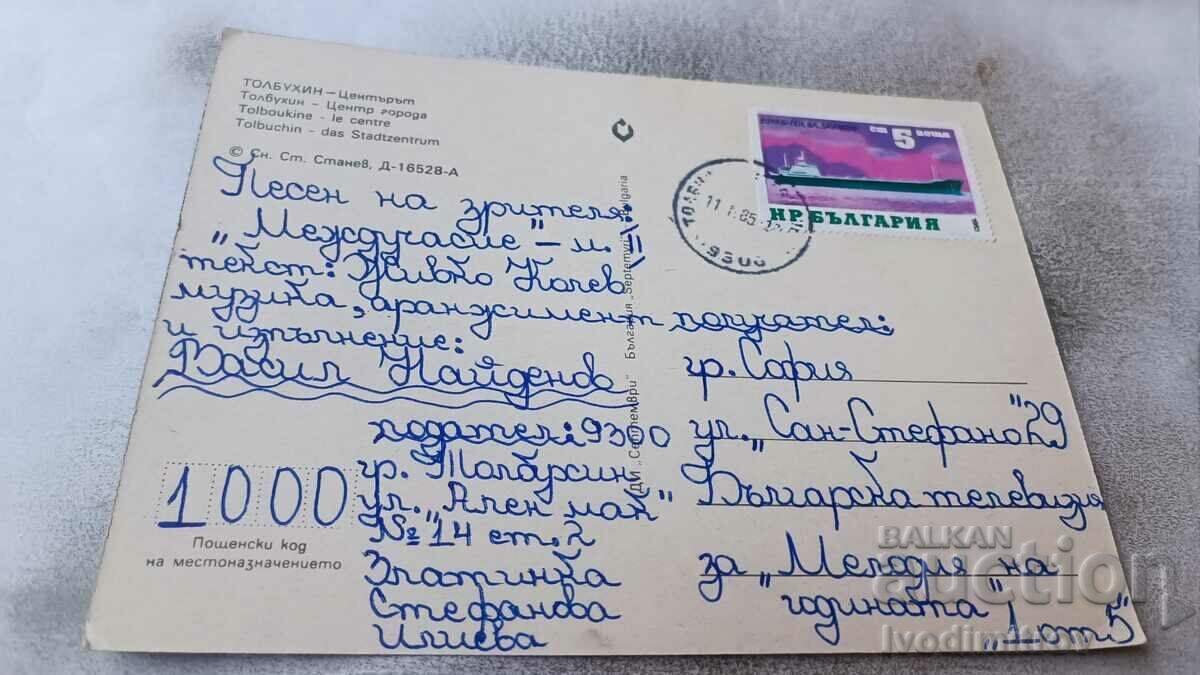 ТОЛБУХИН – Центърът
Толбухин - Центр города
Tolboukine - le centre
Tolbuchin - das Stadtzentrum
© Сн. Ст. Станев, Д-16528-А
Песен на зрителя:
"Междучасие" – м. II
текст: Живко Колев
музика, аранжимент
и изпълнение:
Васил Найденов
податель: 9300
гр. Толбухин
ул. "Ален мак"
№ 14 ет. 2
Златинка
Стефанова
Илиева
1000
Пощенски код
на местоназначението
ДИ „Септември" България „Septemvri" Bulgaria
ст 5 поща
НР БЪЛГАРИЯ
11.1.85
9300
получател:
гр. София
ул. "Сан-Стефано" 29
Българска телевизия
за "Мелодия на
годината" "1 от 5"
BALKAN
auction
Ivodimitrov